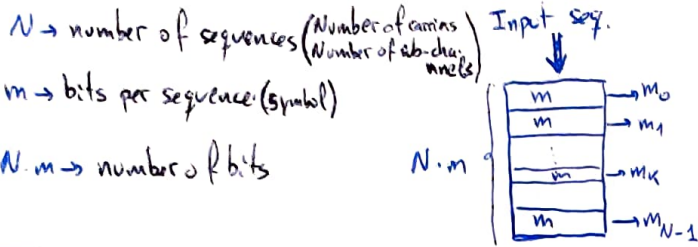 N → number of sequences (Number of carriers
Number of sub-channels)
m → bits per sequence (symbol)
N.m → number of bits
Input seq.
N.m
m → m0
m → m1
⋮
m → mK
m → mN-1